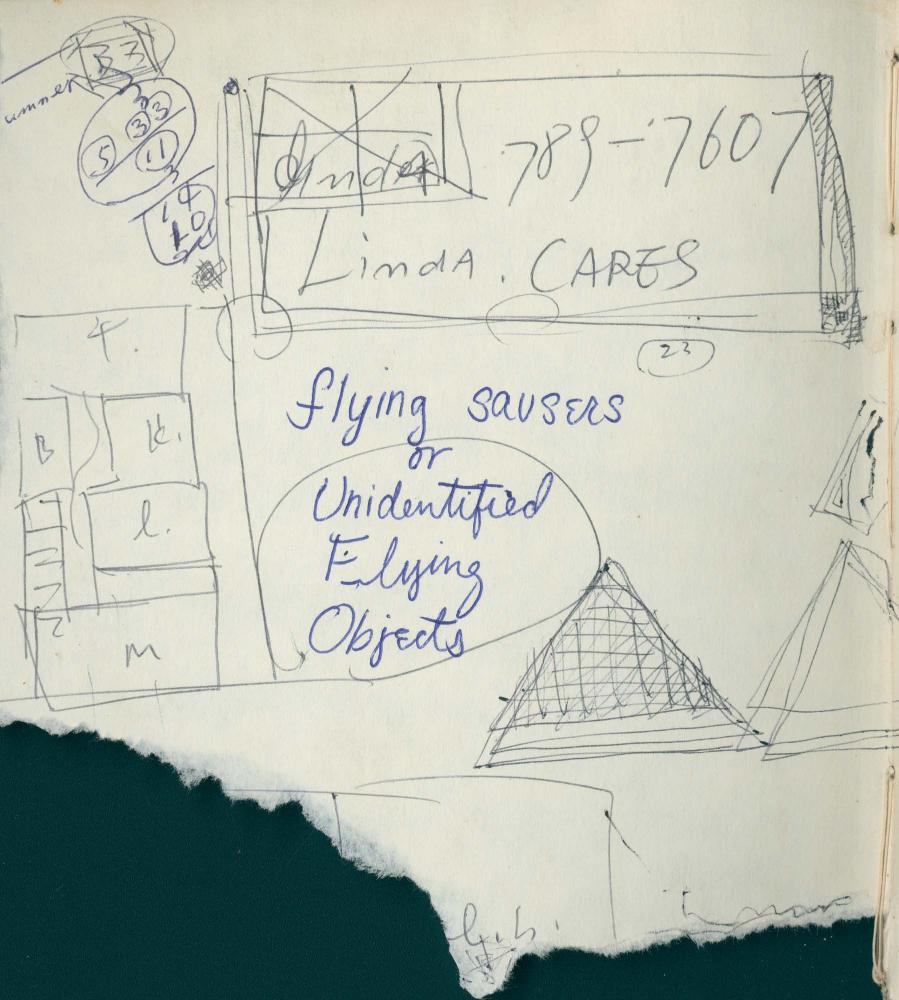 33
ummer
33
33
5
11
14
10
Linda
789-7607
LindA. CARES
23
4.
B
K.
l.
m
flying sausers
or
Unidentified
Flying
Objects